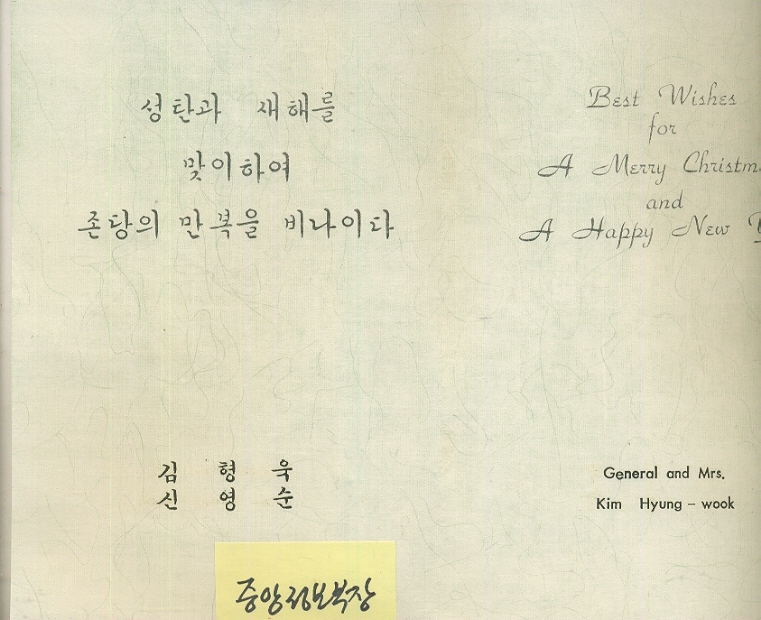 성탄과 새해를
맞이하여
존당의 만복을 비나이다
김 형 욱
신 영 순
중앙정보부장
Best Wishes
for
A Merry Christm
and
A Happy New
General and Mrs.
Kim Hyung-wook